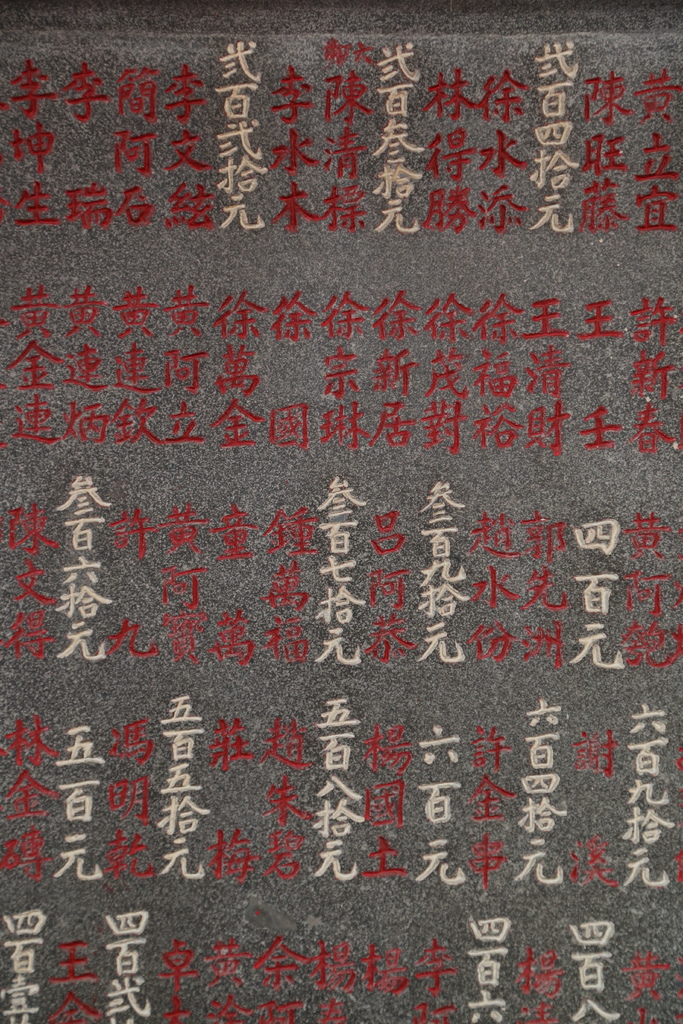 黃立宜
陳旺藤
弍百四拾元
徐水添
林得勝
弍百叁拾元
大聊
陳清標
李水木
弍百弍拾元
李文絃
簡阿石
李瑞
李坤生
許新春
王壬
王清財
徐福裕
徐茂對
徐新居
徐宗琳
徐國
徐萬金
黃阿立
黃連欽
黃連炳
黃金連
黃阿
四百元
郭先洲
趙水份
叁百九拾元
呂阿恭
叁百七拾元
鍾萬福
童萬
黃阿寶
許九
叁百六拾元
陳文得
六百九拾元
謝溪
六百四拾元
許金串
六百元
楊國土
五百八拾元
趙朱碧
莊梅
五百五拾元
馮明乾
五百元
林金磚
黃
四百八
楊
四百六
李阿
楊
楊
余阿
黃
卓
四百弍
王金
四百壹